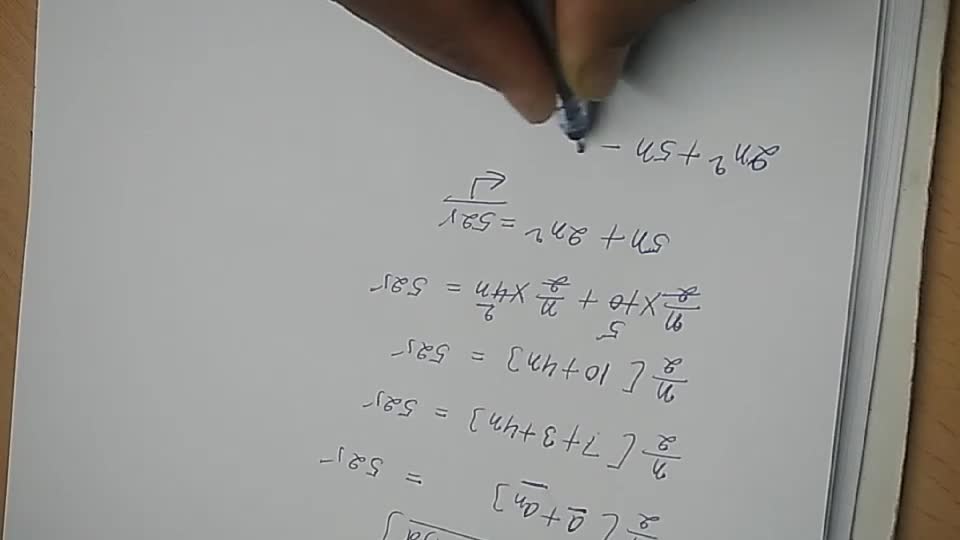 n/2 [a + an] = 525
n/2 [7 + 3 + 4n] = 525
n/2 [10 + 4n] = 525
n/2 × 10 5 + n/2 × 4n 2 = 525
5n + 2n² = 525
2n² + 5n -